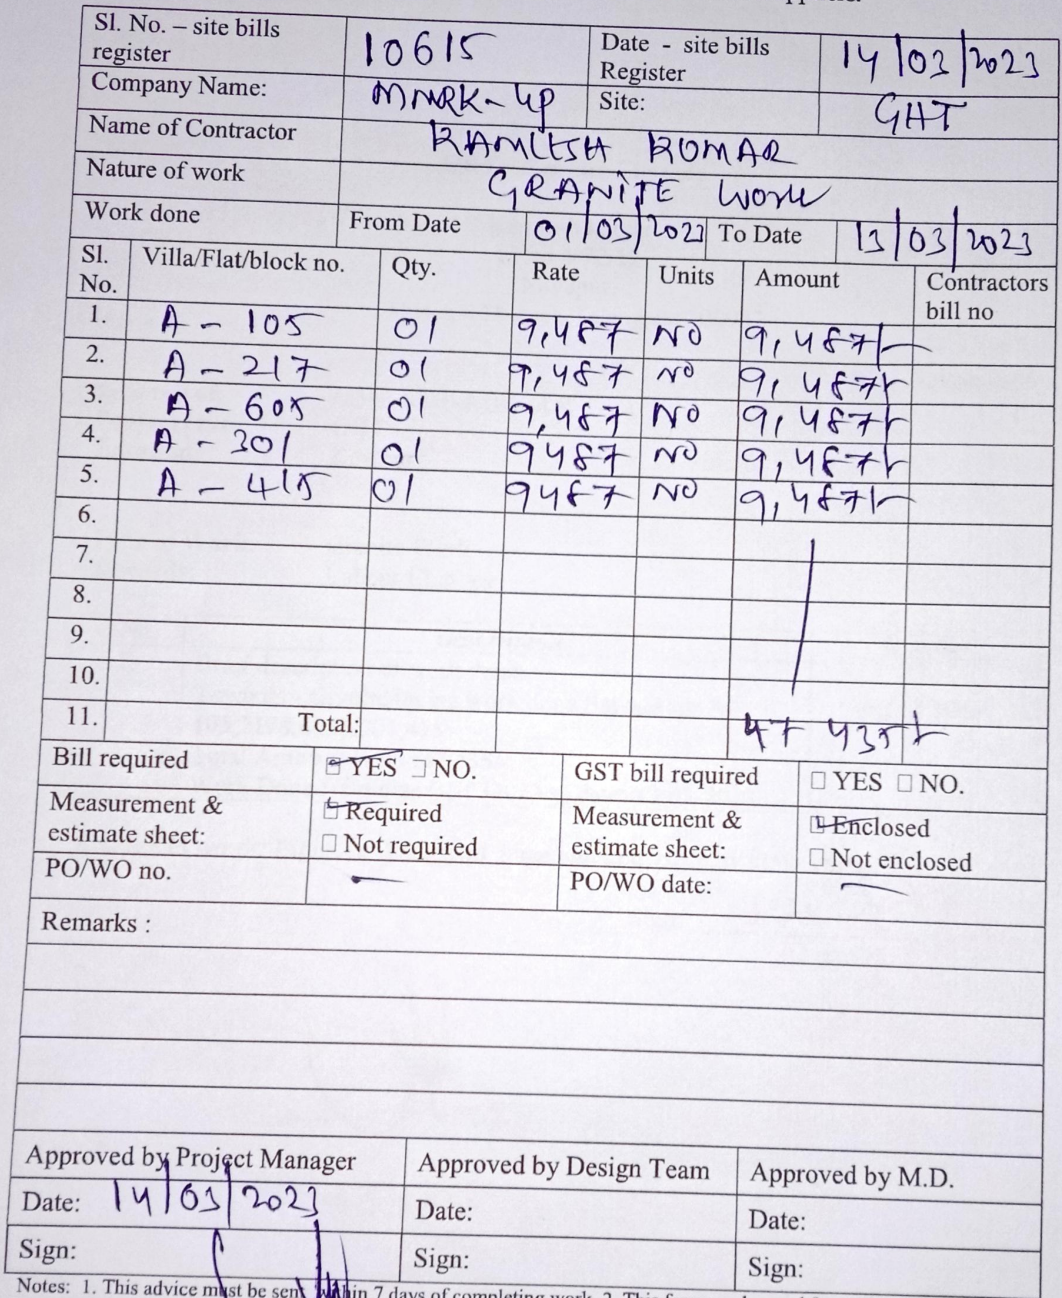 Sl. No. – site bills register 10615 Date - site bills Register 14/03/2023
Company Name: MMRK-UP Site: GHT
Name of Contractor KAMLESH KUMAR
Nature of work GRANITE work
Work done From Date 01/03/2023 To Date 13/03/2023
Sl. No. Villa/Flat/block no. Qty. Rate Units Amount Contractors bill no
1. A - 105 01 9,487 NO 9,487/-
2. A - 217 01 9,487 NO 9,487/-
3. A - 605 01 9,487 NO 9,487/-
4. A - 301 01 9487 NO 9,487/-
5. A - 415 01 9487 NO 9,487/-
6.
7.
8.
9.
10.
11. Total: 47 435/-
Bill required YES NO. GST bill required YES NO.
Measurement & estimate sheet: Required Measurement & estimate sheet: Enclosed
Not required Not enclosed
PO/WO no. - PO/WO date: -
Remarks :
Approved by Project Manager Approved by Design Team Approved by M.D.
Date: 14/03/2023 Date: Date:
Sign: Sign: Sign:
Notes: 1. This advice must be sent within 7 days of completing work. 2. This